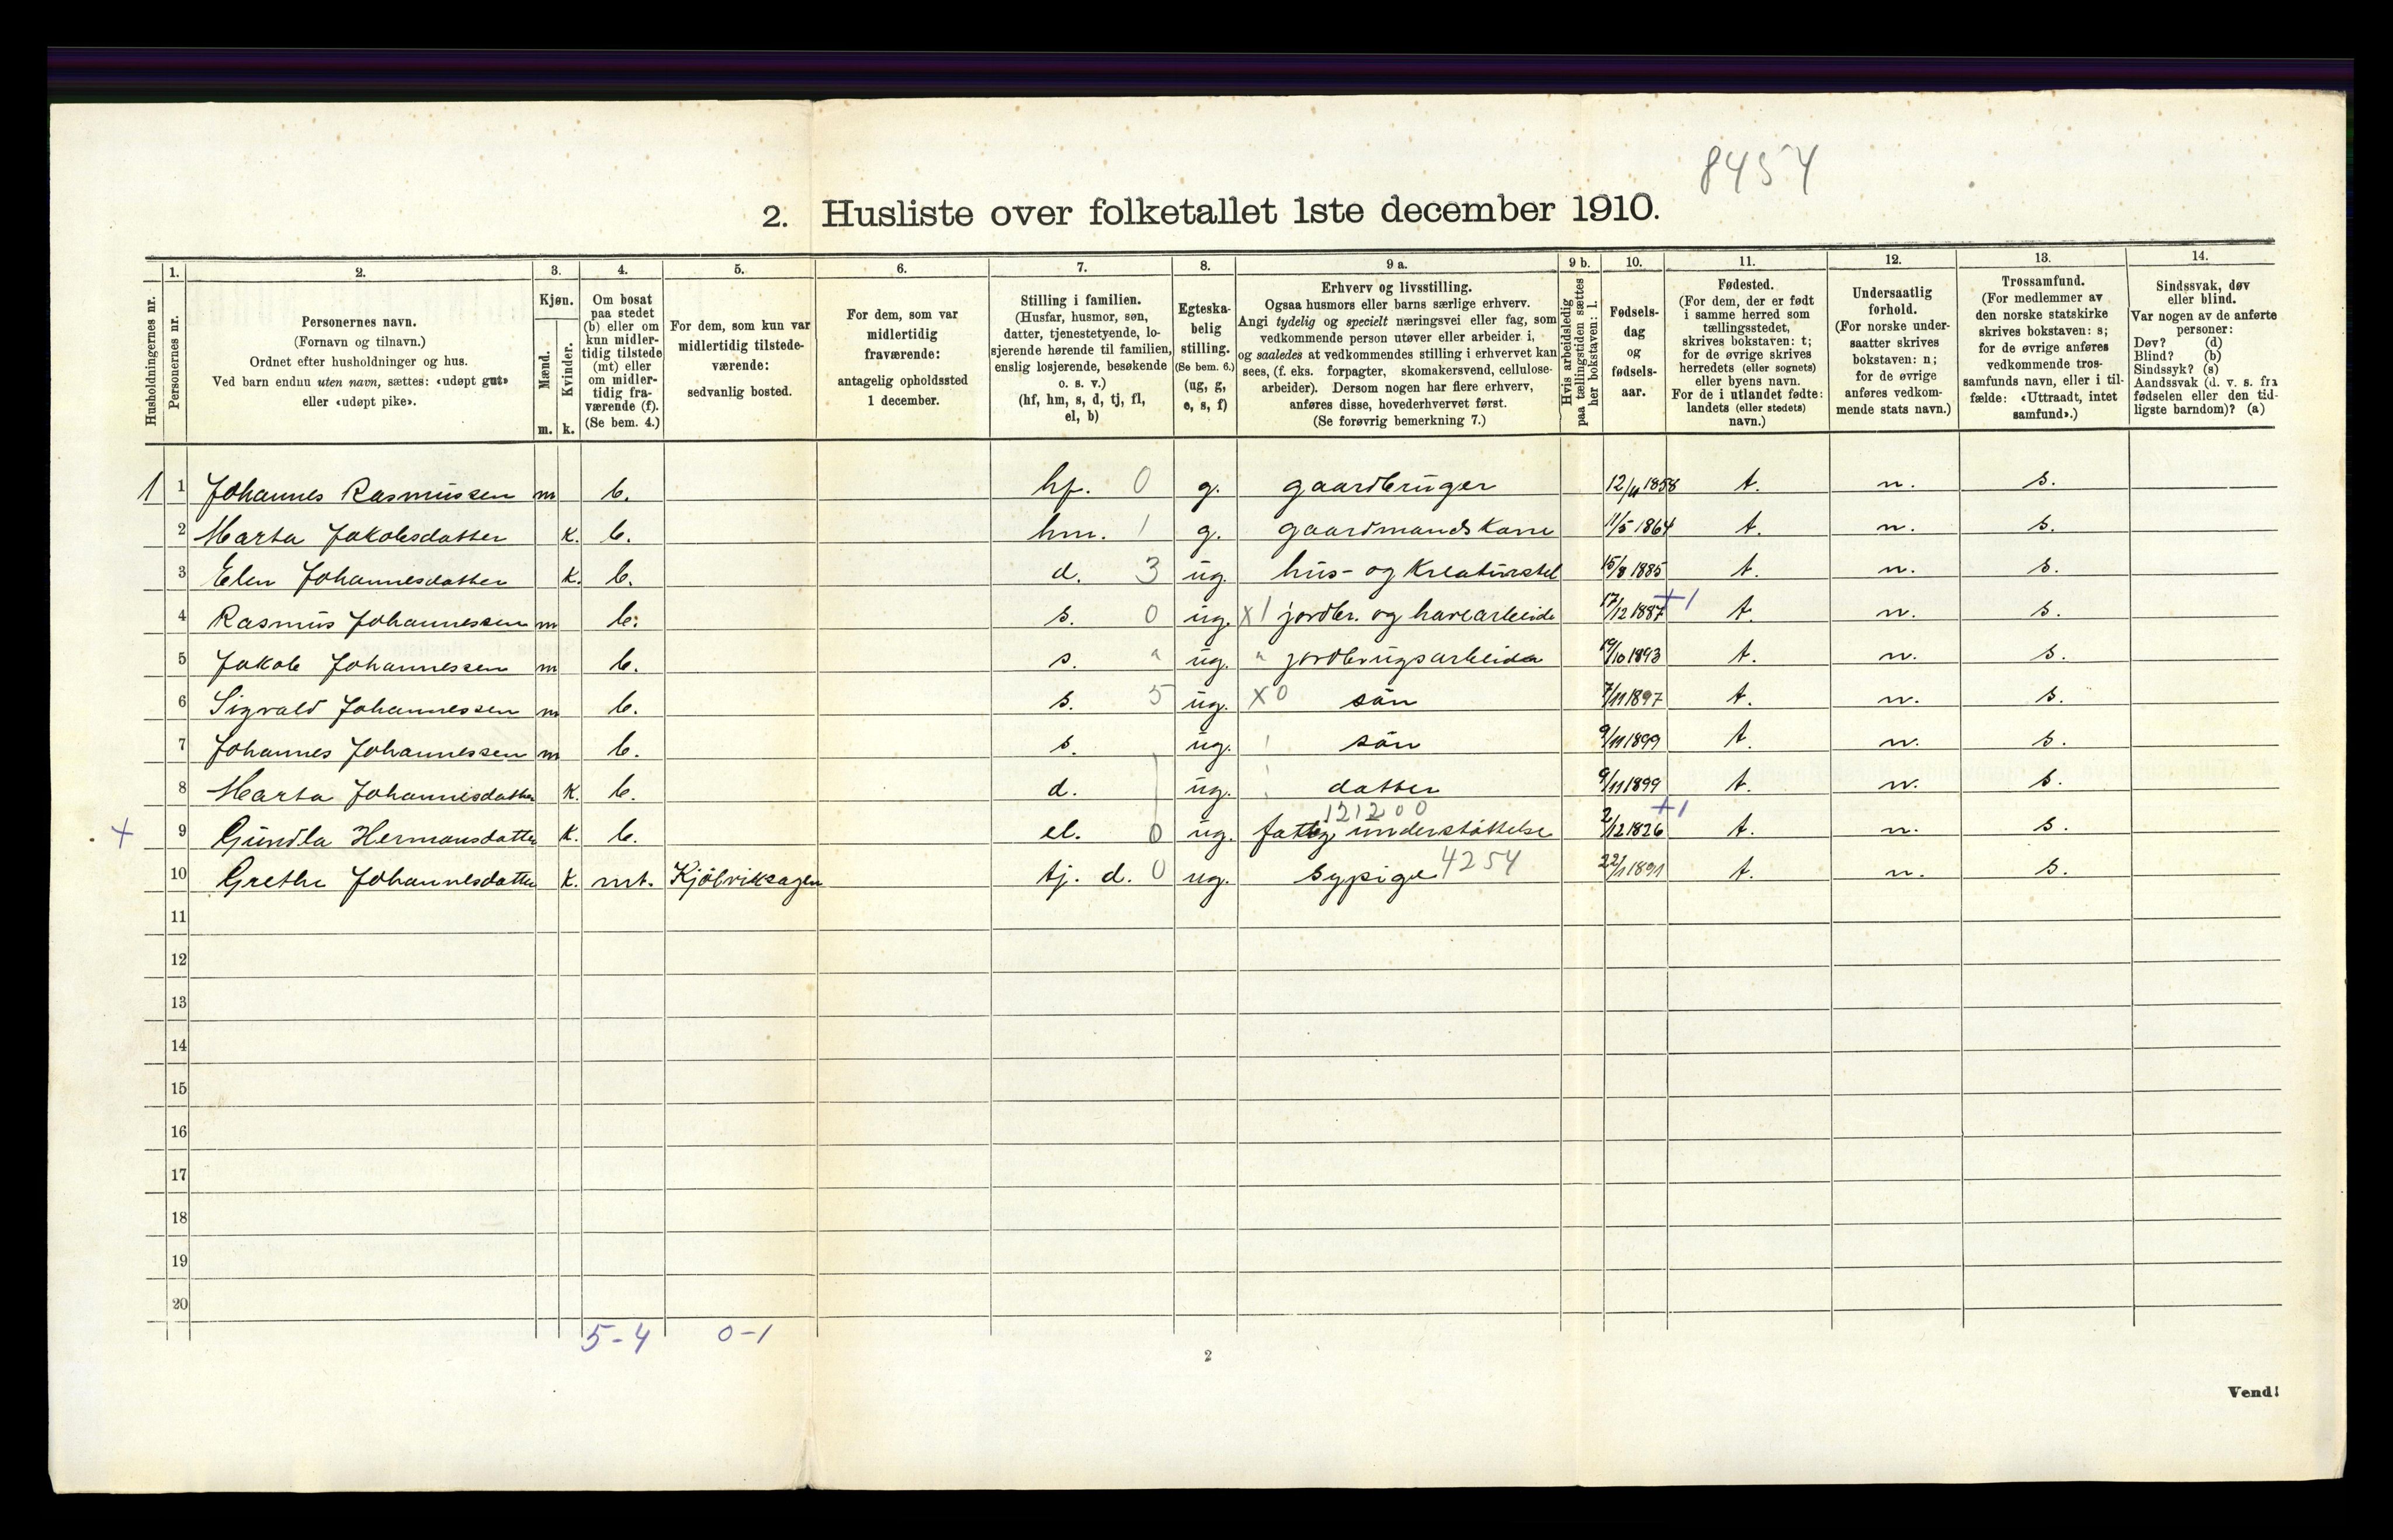 8454
2. Husliste over folketallet 1ste december 1910.
Husholdningernes nr.
1.
Personernes nr.
2.
Personernes navn.
(Fornavn og tilnavn.)
Ordnet efter husholdninger og hus.
Ved barn endnu uten navn, sættes: «udøpt gut»
eller «udøpt pike».
3.
Kjøn.
Mænd.
Kvinder.
m. k.
4.
Om bosat
paa stedet
(b) eller om
kun midler-
tidig tilstede
(mt) eller
om midler-
tidig fra-
værende (f).
(Se bem. 4.)
5.
For dem, som kun var
midlertidig tilstede-
værende:
sedvanlig bosted.
6.
For dem, som var
midlertidig
fraværende:
antagelig opholdssted
1 december.
7.
Stilling i familien.
(Husfar, husmor, søn,
datter, tjenestetyende, lo-
sjerende hørende til familien,
enslig losjerende, besøkende
o. s. v.)
(hf, hm, s, d, tj, fl,
el, b)
8.
Egteska-
belig
stilling.
(Se bem. 6.)
(ug, g,
e, s, f)
9 a.
Erhverv og livsstilling.
Ogsaa husmors eller barns særlige erhverv.
Angi tydelig og specielt næringsvei eller fag, som
vedkommende person utøver eller arbeider i,
og saaledes at vedkommendes stilling i erhvervet kan
sees, (f. eks. forpagter, skomakersvend, cellulose-
arbeider). Dersom nogen har flere erhverv,
anføres disse, hovederhvervet først.
(Se forøvrig bemerkning 7.)
9 b.
Hvis arbeidsledig
paa tællingstiden sættes
her bokstaven: l.
10.
Fødsels-
dag
og
fødsels-
aar.
11.
Fødested.
(For dem, der er født
i samme herred som
tællingsstedet,
skrives bokstaven: t;
for de øvrige skrives
herredets (eller sognets)
eller byens navn.
For de i utlandet fødte:
landets (eller stedets)
navn.)
12.
Undersaatlig
forhold.
(For norske under-
saatter skrives
bokstaven: n;
for de øvrige
anføres vedkom-
mende stats navn.)
13.
Trossamfund.
(For medlemmer av
den norske statskirke
skrives bokstaven: s;
for de øvrige anføres
vedkommende tros-
samfunds navn, eller i til-
fælde: «Uttraadt, intet
samfund».)
14.
Sindssvak, døv
eller blind.
Var nogen av de anførte
personer:
Døv? (d)
Blind? (b)
Sindssyk? (s)
Aandssvak (d. v. s. fra
fødselen eller den tid-
ligste barndom)? (a)
1 1 Johannes Rasmussen m b. hf. 0 g. gaardbruger 12/11 1858 t. n. s.
2 Marta Jakobsdatter k. b. hm. 1 g. gaardmandskone 11/5 1864 t. n. s.
3 Elen Johannesdatter k. b. d. 3 ug. hus- og Kreaturstel 15/8 1885 t. n. s.
4 Rasmus Johannessen m b. s. 0 ug. x1 jordbr. og havearbeide 17/12 1887 +1 t. n. s.
5 Jakob Johannessen m b. s. " ug. " jordbrugsarbeider 19/10 1893 t. n. s.
6 Sigvald Johannessen m b. s. 5 ug. x0 sön 7/11 1897 t. n. s.
7 Johannes Johannessen m b. s. ug. sön 9/11 1899 t. n. s.
8 Marta Johannesdatter k. b. d. ug. datter 9/11 1899 t. n. s.
121200 +1
+ 9 Gundla Hermansdatter k. b. el. 0 ug. fattig understöttelse 2/12 1826 t. n. s.
10 Grethe Johannesdatter k. mt. Kjölviksagen tj. d. 0 ug. Sypige 4254 22/1 1891 t. n. s.
11
12
13
14
15
16
17
18
19
20
5-4 0-1
2
Vend!